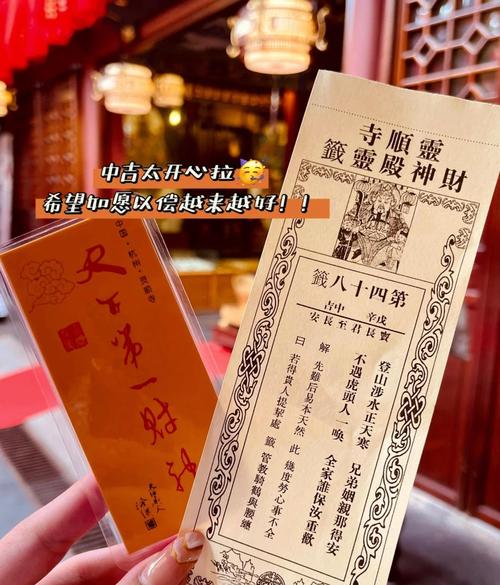 中吉太开心拉🥳
希望如愿以偿越来越好！！
中国·杭州·灵顺寺
天下第一财神
靈順寺
財神殿靈籤
第四十八籤
戊辛 中吉
賈長君至長安
登山涉水正天寒 兄弟姻親那得安
不遇虎頭人一喚 全家誰保汝重歡
解 先難后易本天然 此 幾度勞心事不全
曰 若得貴人提挈處 籤 管教騎鶴與